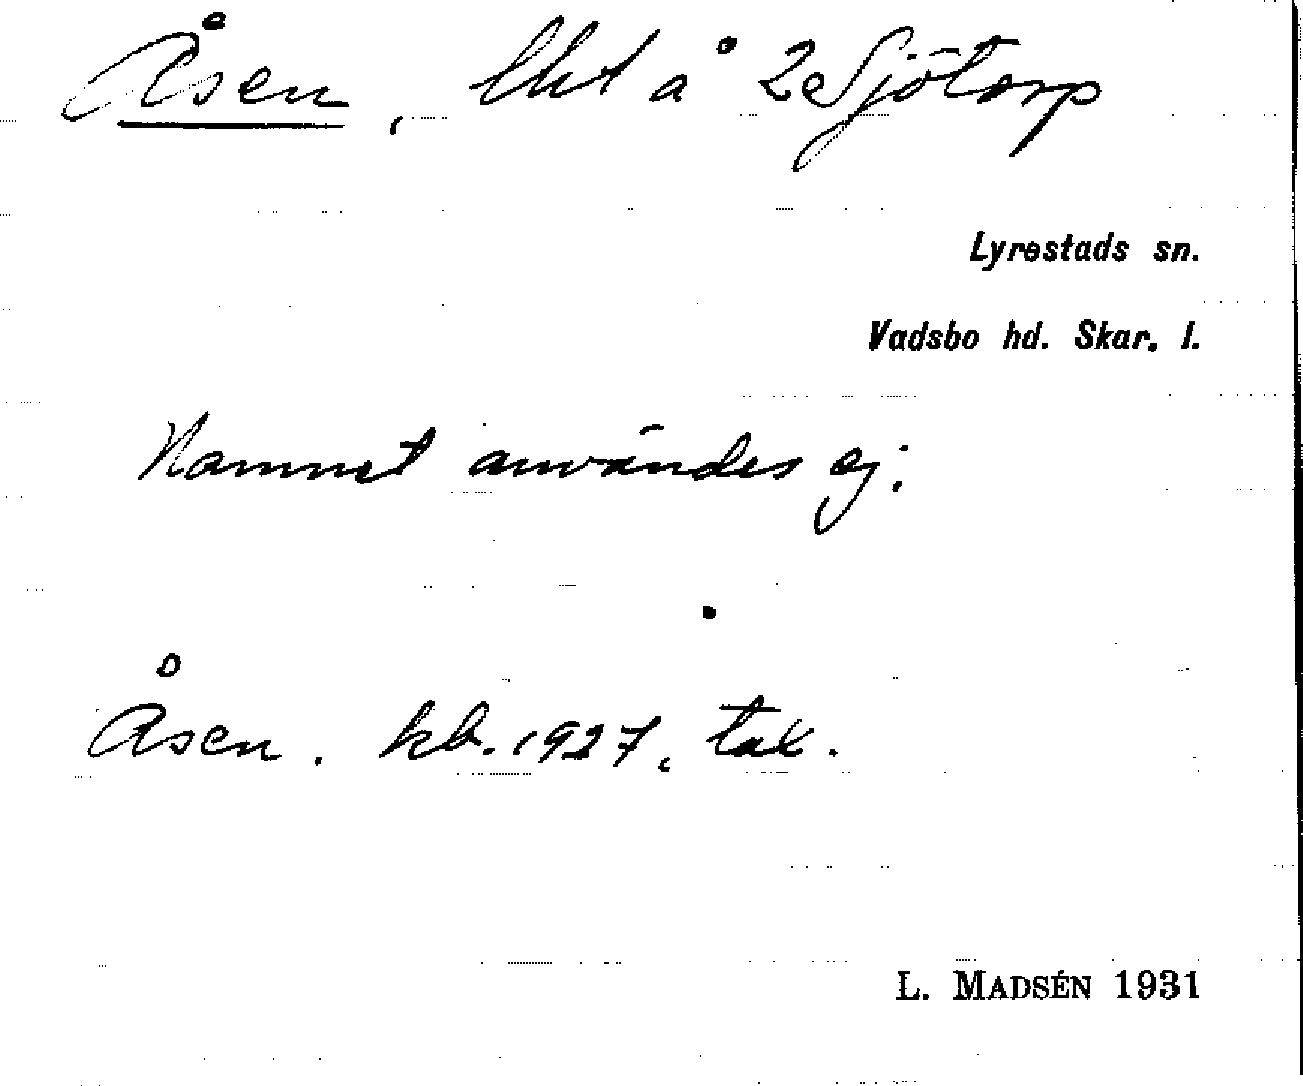 Åsen, lht å 2e Sjötorp
Lyrestads sn.
Vadsbo hd. Skar. l.
Namnet användes ej.
Åsen. kb. 1927,
L. MADSÉN 1931